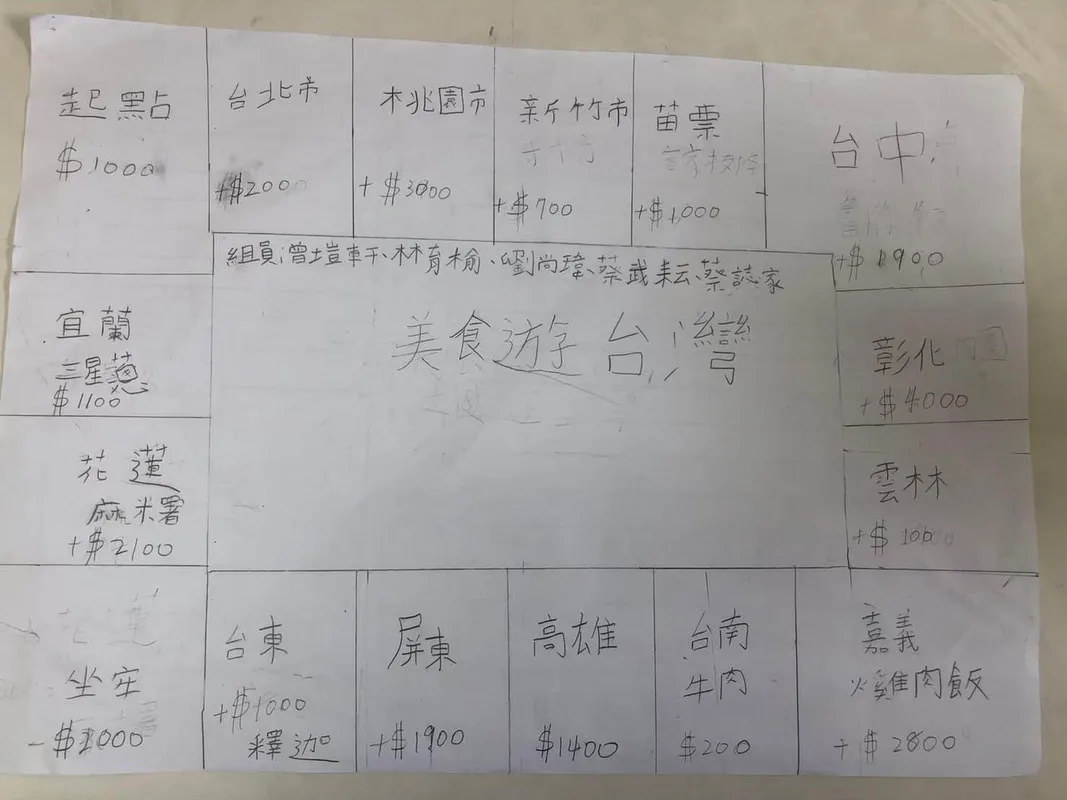 起點
$1000
台北市
+$2000
桃園市
+$3000
新竹市
+$700
苗票
+$1,000
台中
+$1900
組員:曾塏軒、林育榆、劉尚瑋、蔡武耘、蔡誌家
美食遊台灣
宜蘭
三星蔥
$1100
彰化
+$4000
花蓮
麻米署
+$2100
雲林
+$100
坐牢
-$2000
台東
+$1000
釋迦
屏東
+$1900
高雄
$1400
台南
牛肉
$200
嘉義
火雞肉飯
+$2800